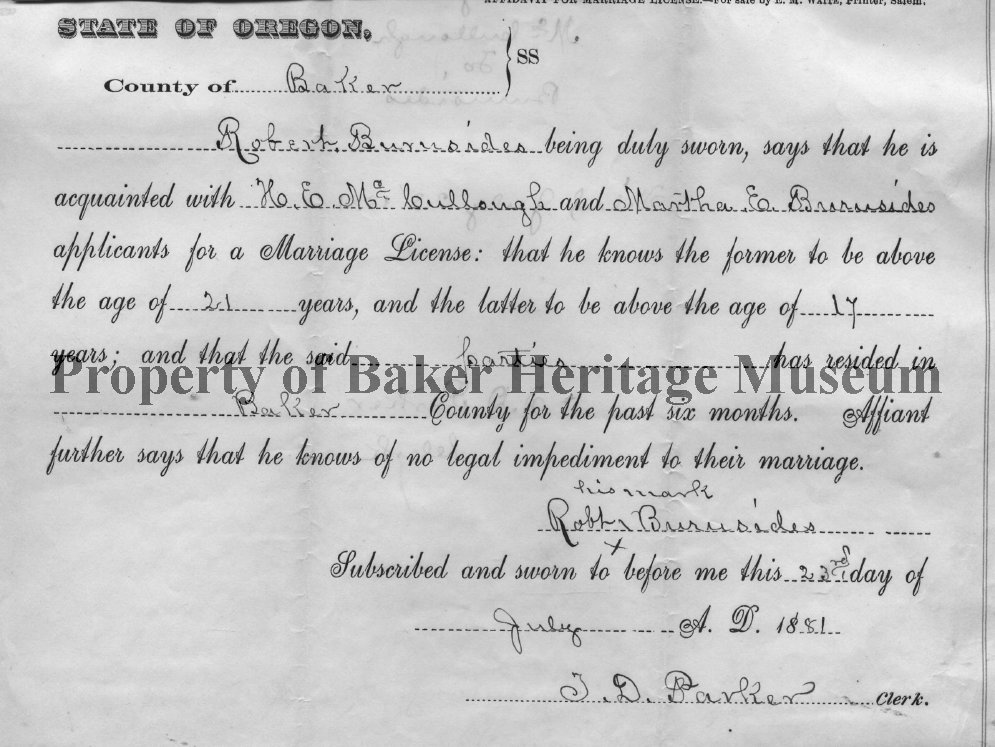 AFFIDAVIT FOR MARRIAGE LICENSE.—For sale by E. M. WAITE, Printer, Salem.
STATE OF OREGON,
County of Baker } SS
Robert Burnsides being duly sworn, says that he is
acquainted with H. E. McCullough and Martha E Burnsides
applicants for a Marriage License: that he knows the former to be above
the age of 21 years, and the latter to be above the age of 17
years; and that the said parties has resided in
Property of Baker Heritage Museum
Baker County for the past six months. Affiant
further says that he knows of no legal impediment to their marriage.
his mark
Robt Burnsides
x
Subscribed and sworn to before me this 23rd day of
July A. D. 1881
T. D. Parker Clerk.